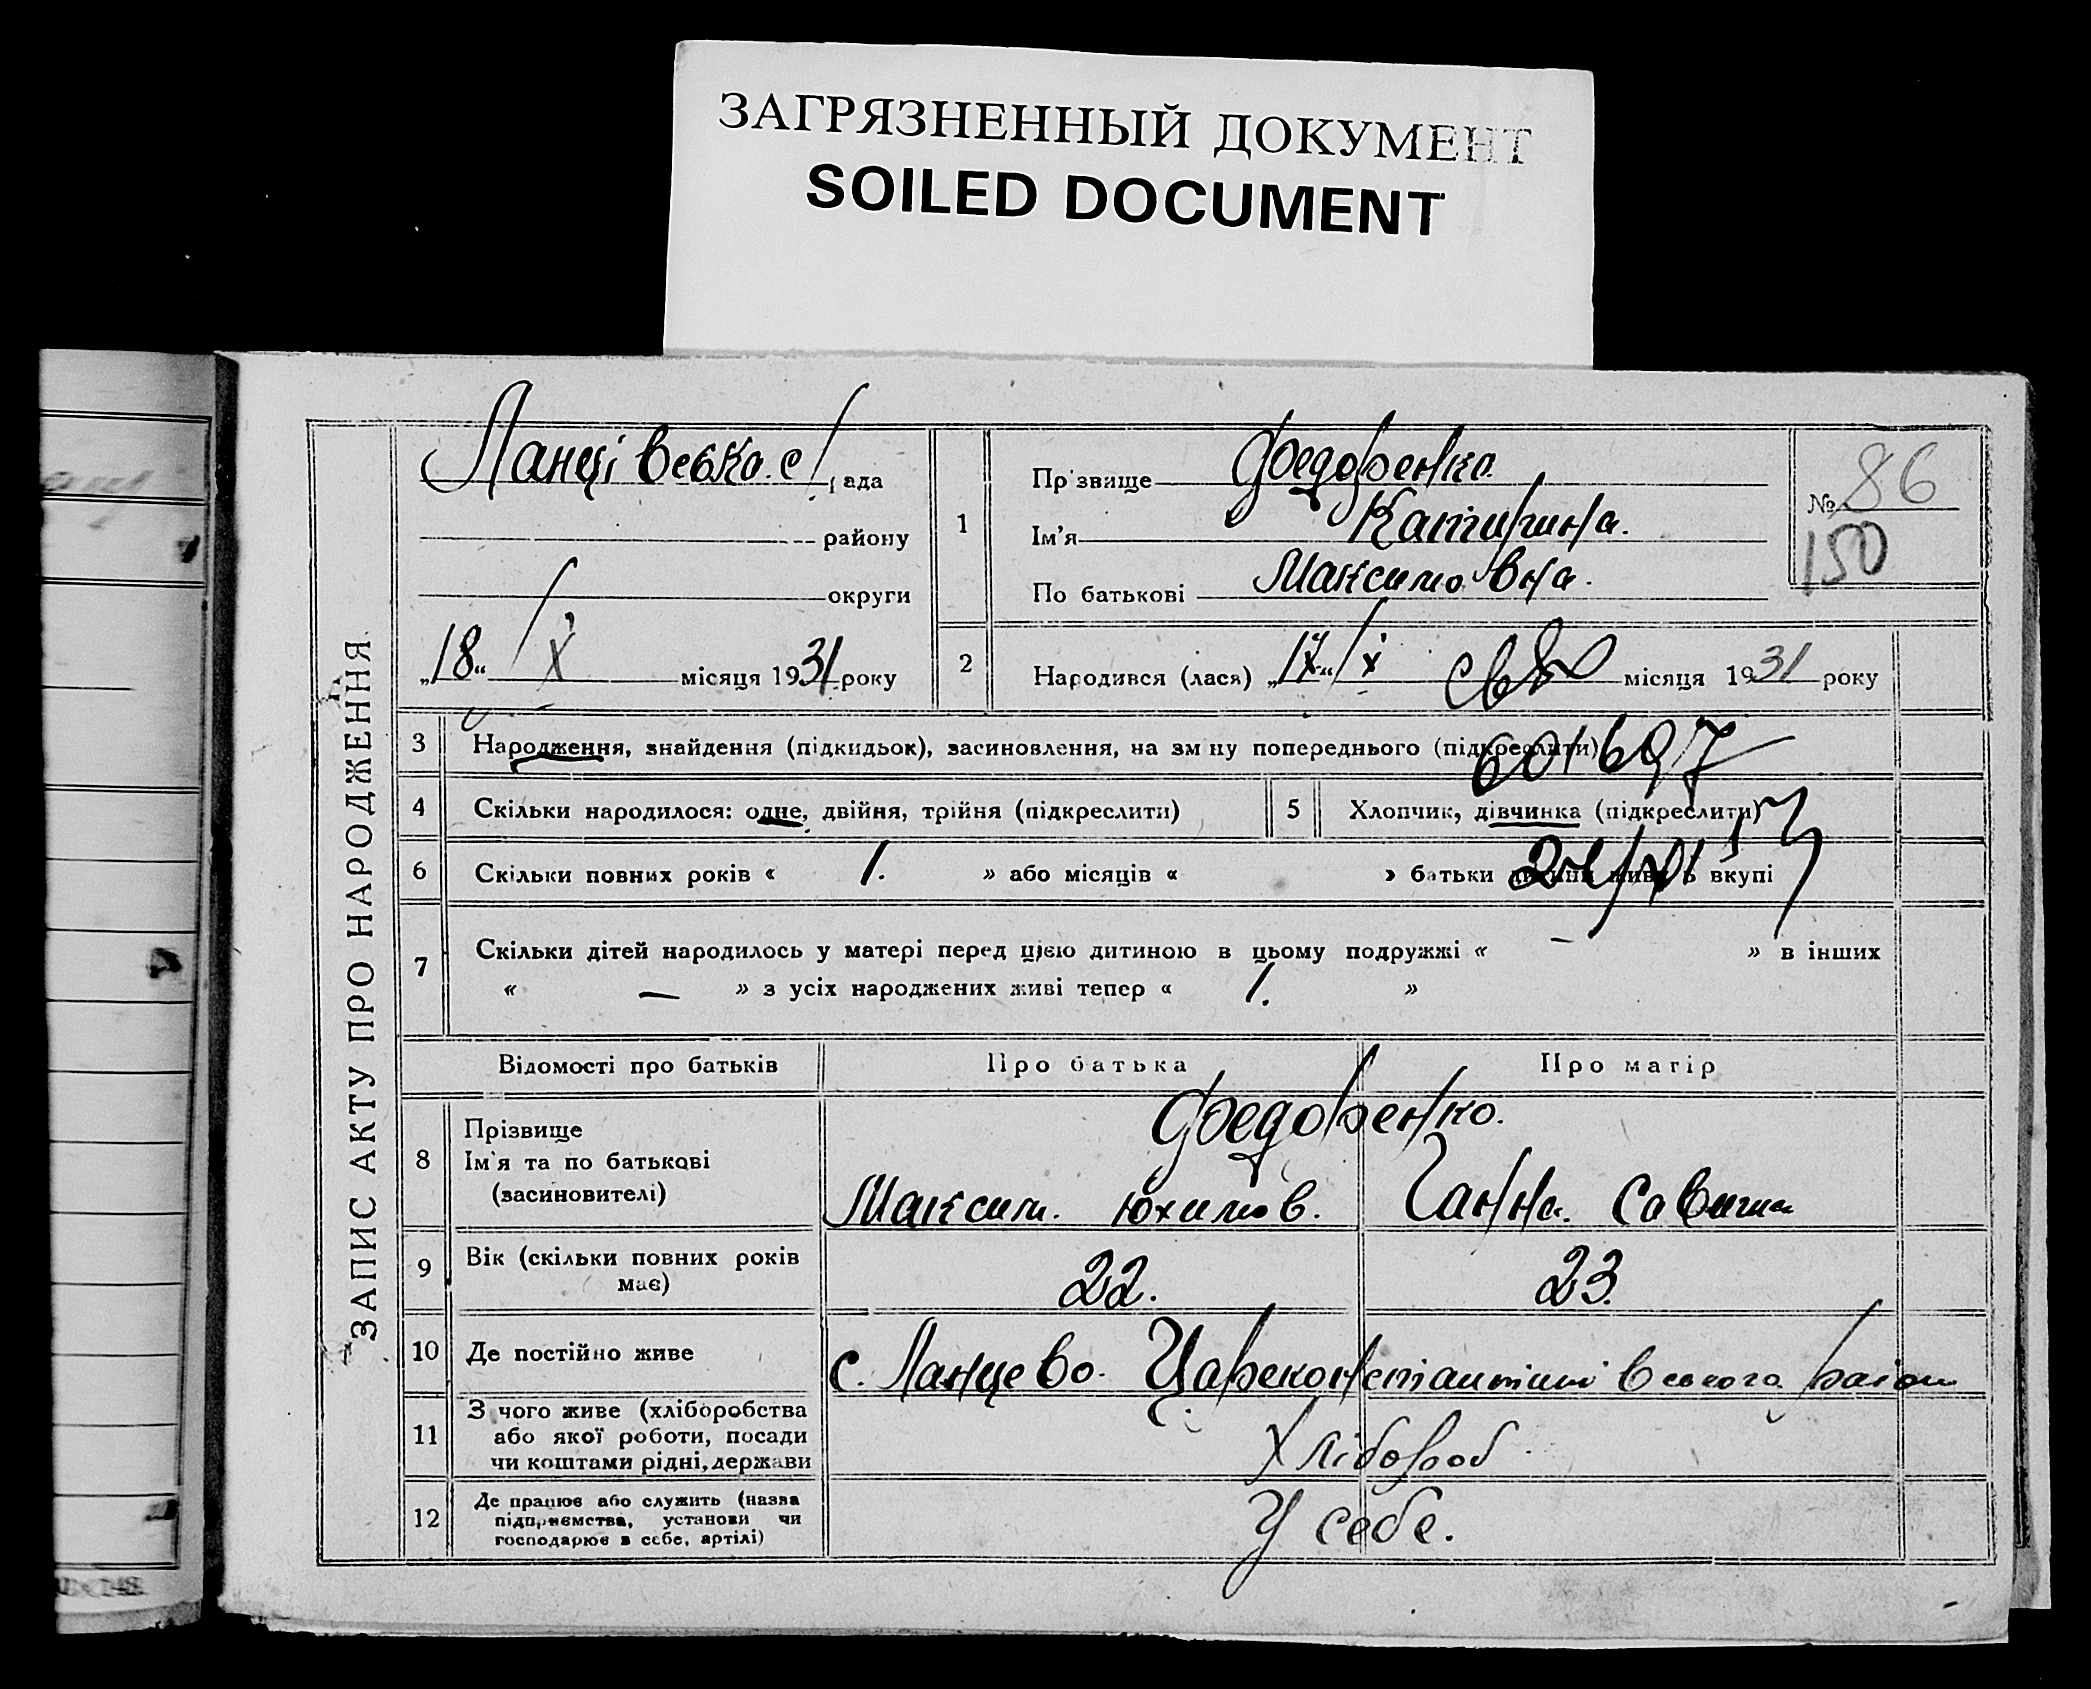 ЗАГРЯЗНЕННЫЙ ДОКУМЕНТ
SOILED DOCUMENT
ЗАПИС АКТУ ПРО НАРОДЖЕННЯ
Ланцівська с/рада
району
округи
„18“ X місяця 1931 року
1
Прізвище Федоренко
Ім'я Катирина.
По батькові Максимовна.
№ 86
150
2 Народився (лася) „17“ X місяця 1931 року
3 Народження, знайдення (підкидьок), засиновлення, на зміну попереднього (підкреслити)
4 Скільки народилося: одне, двійня, трійня (підкреслити)
5 Хлопчик, дівчинка (підкреслити)
6 Скільки повних років « 1. » або місяців « » батьки дитини живуть вкупі
7 Скільки дітей народилось у матері перед цією дитиною в цьому подружжі « — » в інших
« — » з усіх народжених живі тепер « 1. »
Відомості про батьків Про батька Про матір
8 Прізвище
Ім'я та по батькові
(засиновителі)
Федоренко.
Максим. Юхимов. Ганна. Савишна
9 Вік (скільки повних років має) 22. 23.
10 Де постійно живе с. Ланцево. Цареконстантинівського район
11 З чого живе (хліборобства
або якої роботи, посади
чи коштами рідні, держави
Хлібороб.
12 Де працює або служить (назва
підприємства, установи чи
господарює в себе, артілі)
У себе.